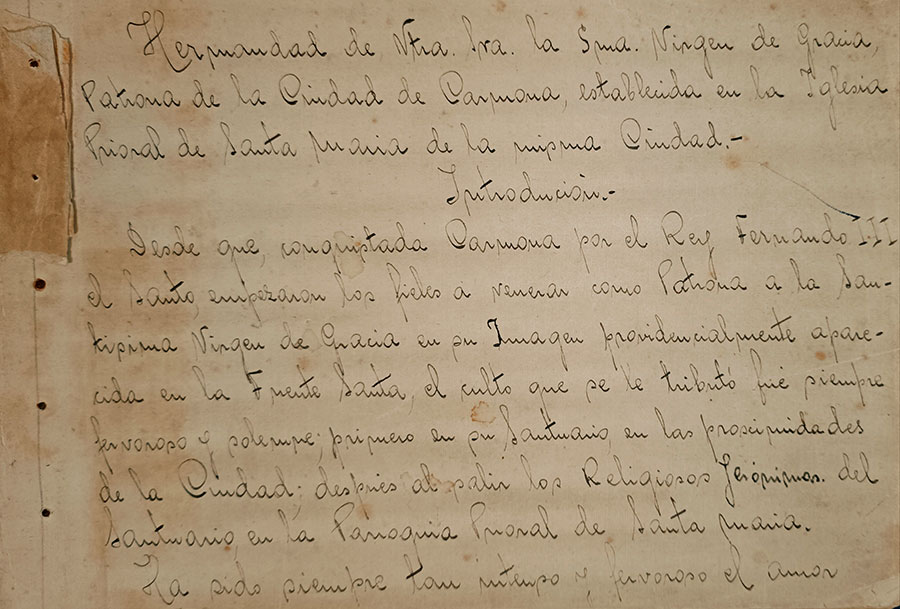 Hermandad de Ntra. Sra. la Sma. Virgen de Gracia,
Patrona de la Ciudad de Carmona, establecida en la Iglesia
Prioral de Santa Maria de la misma Ciudad.-
Introdución.-
Desde que, conquistada Carmona por el Rey Fernando III
el Santo, empezaron los fieles a venerar como Patrona a la San-
tisima Virgen de Gracia en su Imagen providencialmente apare-
cida en la Fuente Santa, el culto que se le tributó fué siempre
fervoroso y solemne; primero en su Santuario, en las proscimidades
de la Ciudad; despues al salir los Religiosos Jerónimos. del
Santuario, en la Parroquia Prioral de Santa Maria.
Ha sido siempre tan intenso y fervoroso el amor